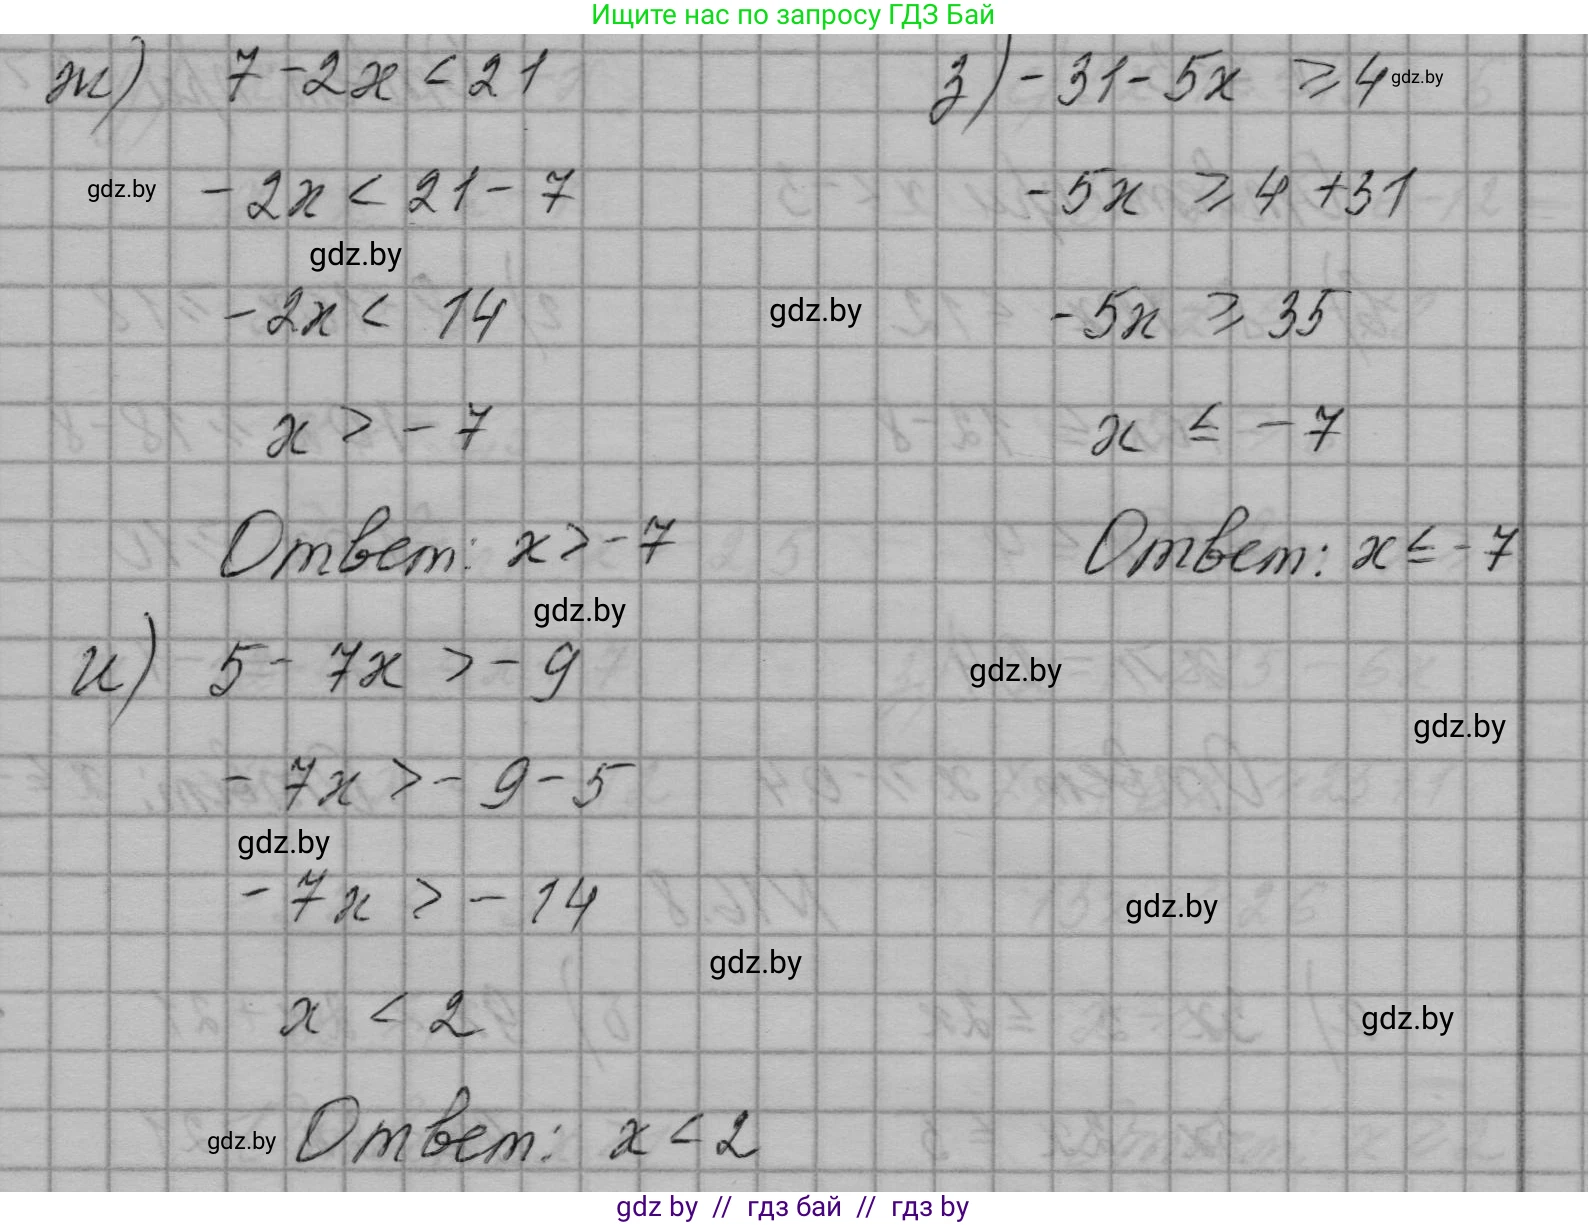 Ищите нас по запросу ГДЗ Бай
ж) 7 - 2x < 21
-2x < 21 - 7
-2x < 14
x > -7
Ответ: x > -7
з) -31 - 5x ≥ 4
-5x ≥ 4 + 31
-5x ≥ 35
x ≤ -7
Ответ: x ≤ -7
и) 5 - 7x > -9
-7x > -9 - 5
-7x > -14
x < 2
Ответ: x < 2
gdz.by
gdz.by
gdz.by
gdz.by
gdz.by
gdz.by
gdz.by
gdz.by
gdz.by
gdz.by
gdz.by
gdz.by
gdz by // гдз бай // гдз by